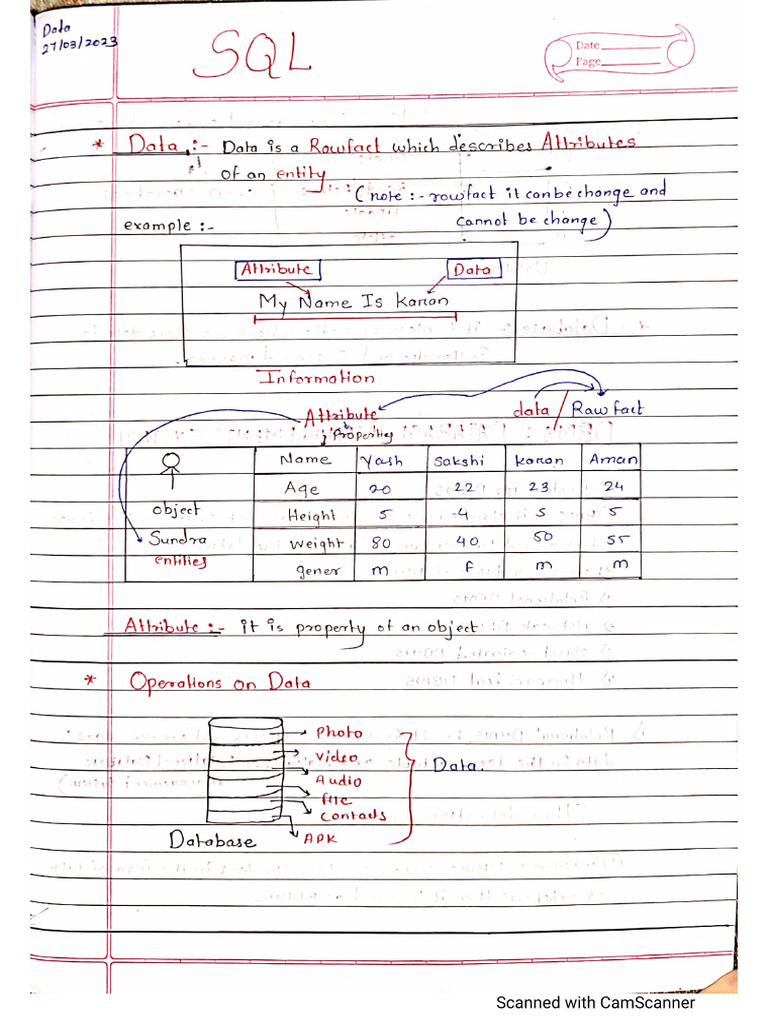 Data
27/03/2023
SQL
Date
Page
* Data :- Data is a Rawfact which describes Attributes
of an entity
(note :- rowfact it canbe change and
cannot be change)
example :-
Attribute Data
My Name Is Karan
Information
Attribute data / Raw fact
Properties
Name Yash Sakshi Karan Aman
Age 20 22 23 24
object Height 5 4 5 5
Sundra Weight 80 40 50 55
entities
gener m F m m
Attribute :- it is property of an object
* Operations on Data
Photo
Video
Audio
file
Contacts
APK
Data
Database
Scanned with CamScanner